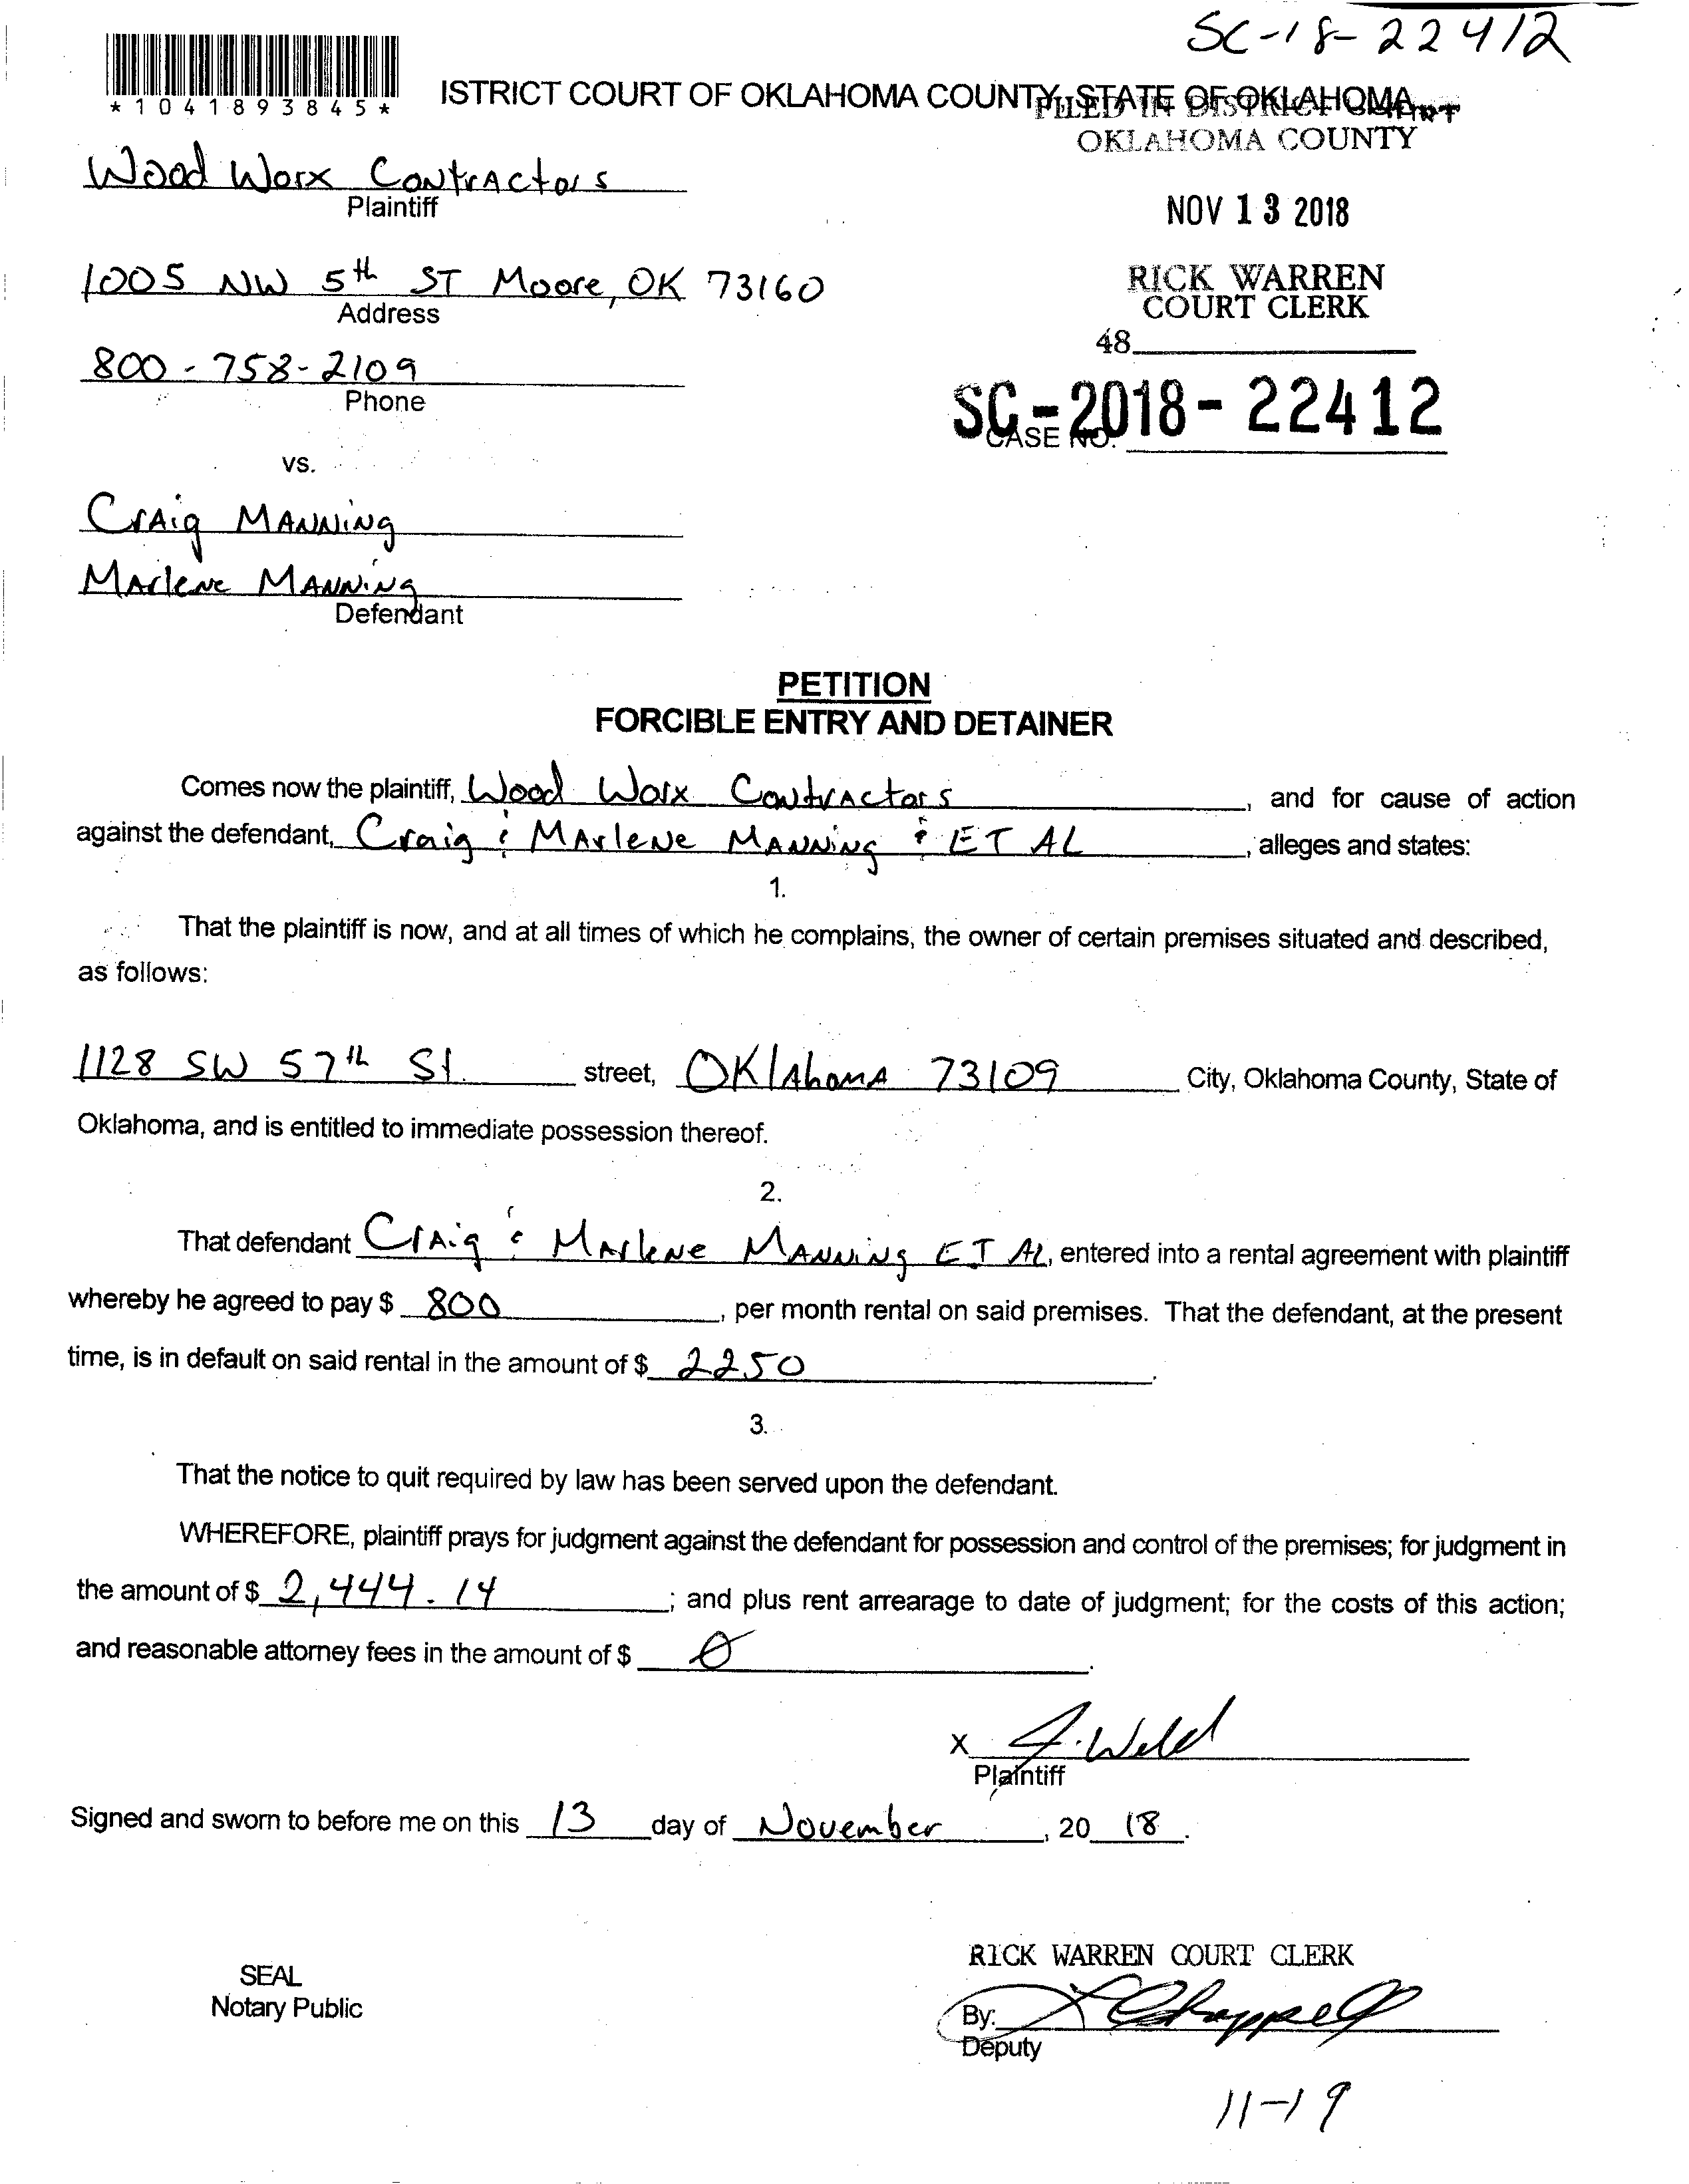 SC-18-22412
*1041893845*
ISTRICT COURT OF OKLAHOMA COUNTY, STATE OF OKLAHOMA
FILED IN DISTRICT COURT
OKLAHOMA COUNTY
Wood Worx Contractors
Plaintiff
NOV 13 2018
1005 NW 5th ST Moore, OK 73160
Address
RICK WARREN
COURT CLERK
48
800-758-2109
Phone
SC-2018-22412
CASE NO.
vs.
Craig Manning
Marlene Manning
Defendant
PETITION
FORCIBLE ENTRY AND DETAINER
Comes now the plaintiff, Wood Worx Contractors, and for cause of action
against the defendant, Craig & Marlene Manning & ET AL, alleges and states:
1.
That the plaintiff is now, and at all times of which he complains, the owner of certain premises situated and described,
as follows:
1128 SW 57th St. street, Oklahoma 73109 City, Oklahoma County, State of
Oklahoma, and is entitled to immediate possession thereof.
2.
That defendant Craig & Marlene Manning ET AL, entered into a rental agreement with plaintiff
whereby he agreed to pay $ 800, per month rental on said premises. That the defendant, at the present
time, is in default on said rental in the amount of $ 2250.
3.
That the notice to quit required by law has been served upon the defendant.
WHEREFORE, plaintiff prays for judgment against the defendant for possession and control of the premises; for judgment in
the amount of $ 2,444.14; and plus rent arrearage to date of judgment; for the costs of this action;
and reasonable attorney fees in the amount of $ 0.
X J. Weld
Plaintiff
Signed and sworn to before me on this 13 day of November, 20 18.
RICK WARREN COURT CLERK
SEAL
Notary Public
By: L Chappell
Deputy
11-19